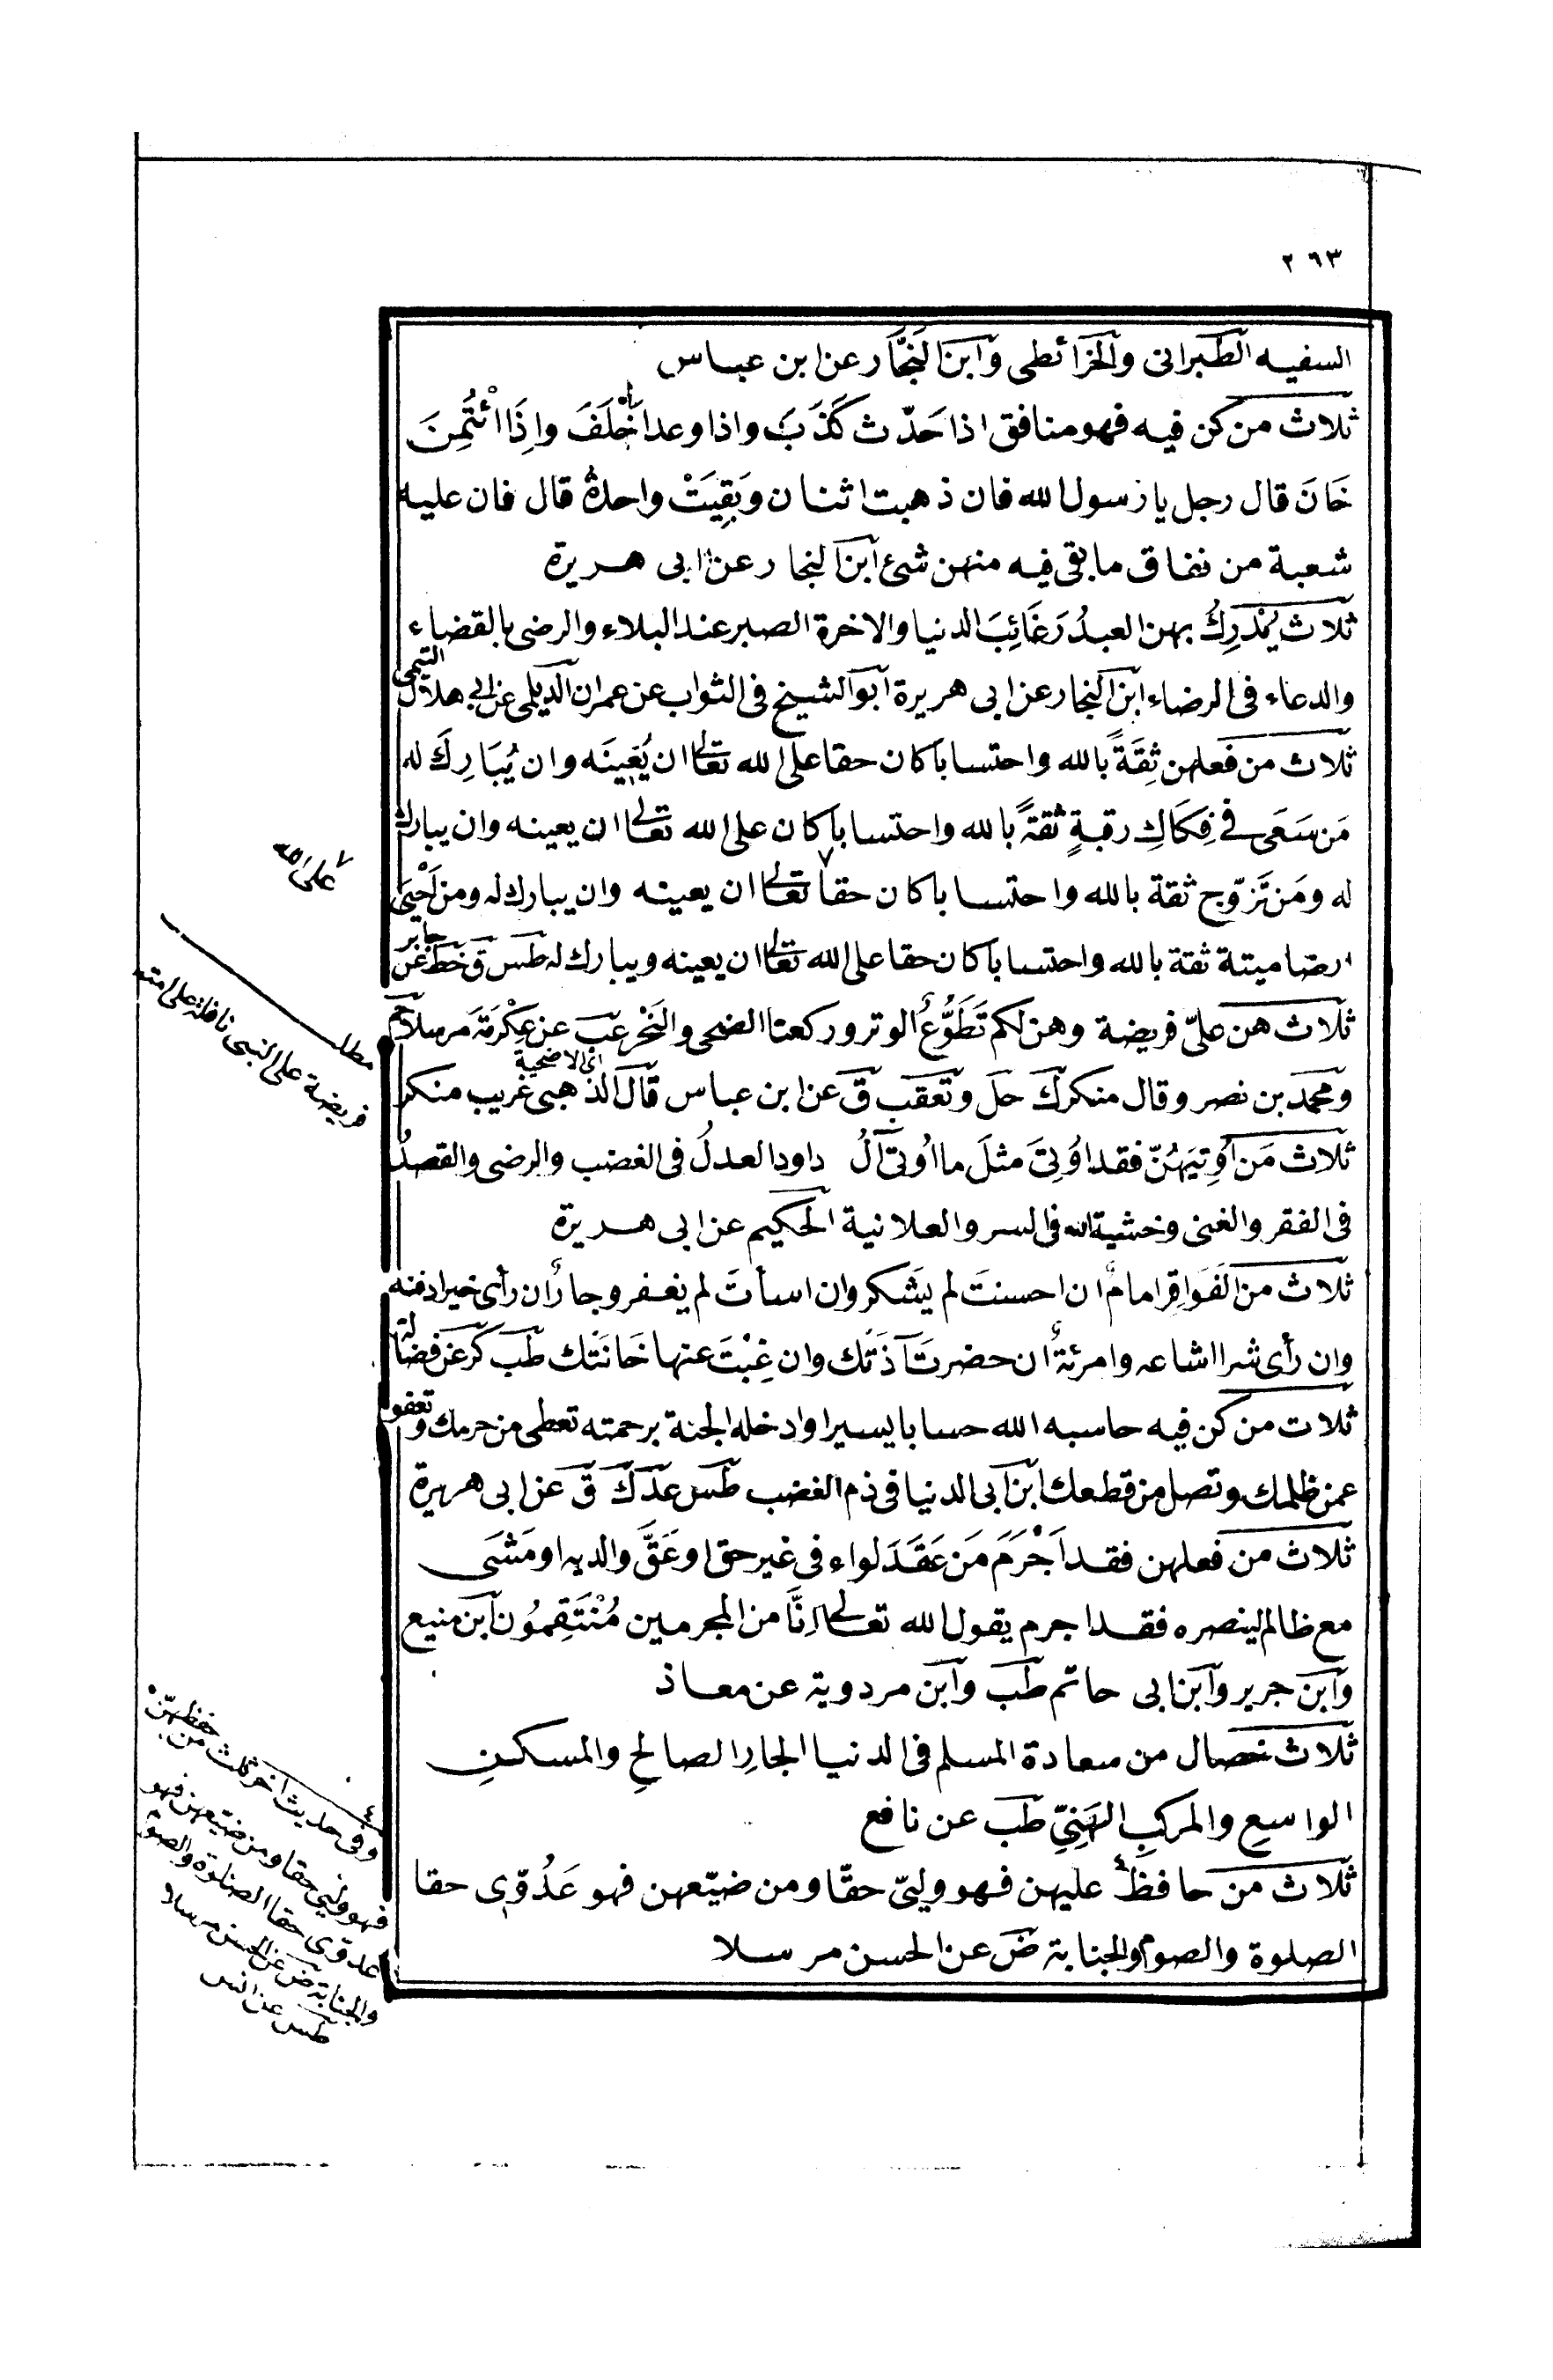 ٢٦٣
السفيه الطبرانى والخرائطى وابن النجار عن ابن عباس
ثلاث من كن فيه فهو منافق اذا حَدّث كَذَبَ واذا وعد اَخْلَفَ واِذَا ائْتُمِنَ
خَانَ قال رجل يا رسول الله فان ذهبت اثنان وبَقِيَتْ واحدةٌ قال فان عليه
شعبة من نفاق ما بقى فيه منهن شئ ابن النجار عن ابى هريرة
ثلاث يُدْرِكُ بهن العبدُ رَغَائِبَ الدنيا والاخرة الصبر عند البلاء والرضى بالقضاء
والدعاء فى الرضاء ابن النجار عن ابى هريرة ابو الشيخ فى الثواب عن عمران الديلمى عن ابى هلال التيمى
ثلاث من فعلهن ثِقَةً بالله واحتسابا كان حقا على الله تعالى ان يُعِينَه وان يُبَارِكَ له
مَن سَعَى فى فِكَاكِ رقبةٍ ثقةً بالله واحتسابا كان على الله تعالى ان يعينه وان يبارك
له ومَن تَزوّج ثقة بالله واحتسابا كان حقا ٧ تعالى ان يعينه وان يبارك له ومن اَحْيَى
ارضا ميتة ثقة بالله واحتسابا كان حقا على الله تعالى ان يعينه ويبارك له طس ق خط عن جابر
ثلاث هن علىّ فريضة وهن لكم تَطَوُّعٌ الوتر وركعتا الضحى والنحر عب عن عِكْرَمَةَ مرسلا حم
اى الاضحية
ومحمد بن نصر وقال منكر ك حل وتعقب ق عن ابن عباس قال الذهبى غريب منكر
ثلاث مَن اُوتِيَهُنّ فقد اوُتِىَ مثلَ ما اُوتى آلُ داود العدلُ فى الغضب والرضى والقصدُ
فى الفقر والغنى وخشية الله فى السر والعلانية الحكيم عن ابى هريرة
ثلاث من الفَوَاقِر امامٌ ان احسنتَ لم يَشكر وان اسأتَ لم يغفر وجارٌ ان رأى خيرا دفنه
وان رأى شرا اشاعه وامرئةٌ ان حضرتَ آذَتْك وان غِبْتَ عنها خَانَتْك طب كر عن فضالة
ثلاث من كن فيه حاسبه الله حسابا يسيرا وادخله الجنة برحمته تعطى من حرمك وتعفو
عمن ظلمك وتصل من قطعك ابن ابى الدنيا فى ذم الغضب طس عد ك ق عن ابى هريرة
ثلاث من فعلهن فقد اَجْرَمَ مَن عَقَدَ لواء فى غير حق او عَقَّ والديه او مَشَى
مع ظالم لينصره فقد اجرم يقول الله تعالى اِنَّا من المجرمين مُنْتَقِمُون ابن منيع
وابن جرير وابن ابى حاتم طب وابن مردوية عن معاذ
ثلاث خصال من سعادة المسلم فى الدنيا الجارِ الصالحِ والمسكنِ
الواسعِ والمركبِ الهَنِىّ طب عن نافع
ثلاث من حافظ٤ عليهن فهو وليىّ حقّا ومن ضيّعهن فهو عَدُوّى حقا
الصلوة والصوم والجنابة ض عن الحسن مرسلا
٧ على الله
مطلب
فريضة على النبى نافلة على امته
٤
وفى حديث اخر ثلث من حفظهنّ
فهو وليى حقا ومن ضيّعهن فهو
عدوّى حقا الصلوة والصوم
والجنابة ض عن الحسن مرسلا
طس عن انس